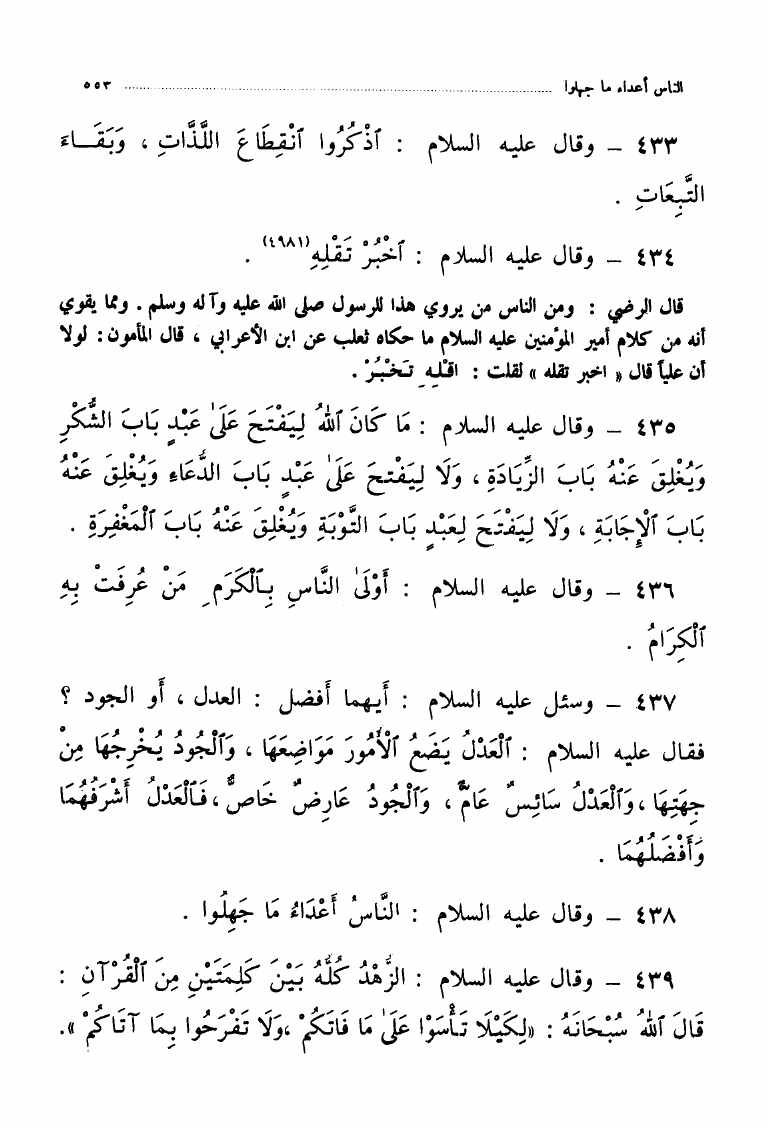 الناس أعداء ما جهلوا ........................ ٥٥٣
٤٣٣ – وقال عليه السلام : ٱذْكُرُوا ٱنْقِطَاعَ اللَّذَّاتِ ، وَبَقَــاءَ
التَّبِعَاتِ .
٤٣٤ – وقال عليه السلام : ٱخْبُرْ تَقْلِهِ(٤٩٨١) .
قال الرضي : ومن الناس من يروي هذا للرسول صلى الله عليه وآله وسلم . ومما يقوي
أنه من كلام أمير المؤمنين عليه السلام ما حكاه ثعلب عن ابن الأعرابي ، قال المأمون : لولا
أن علياً قال « اخبر تقله » لقلت : اقْلِهِ تَخْبُرْ .
٤٣٥ – وقال عليه السلام : مَا كَانَ ٱللهُ لِيَفْتَحَ عَلَىٰ عَبْدٍ بَابَ الشُّكْرِ
وَيُغْلِقَ عَنْهُ بَابَ الزِّيَادَةِ ، وَلَا لِيَفْتَحَ عَلَىٰ عَبْدٍ بَابَ الدُّعَاءِ وَيُغْلِقَ عَنْهُ
بَابَ ٱلْإِجَابَةِ ، وَلَا لِيَفْتَحَ لِعَبْدٍ بَابَ التَّوْبَةِ وَيُغْلِقَ عَنْهُ بَابَ ٱلْمَغْفِرَةِ .
٤٣٦ – وقال عليه السلام : أَوْلَىٰ النَّاسِ بِٱلْكَرَمِ مَنْ عُرِفَتْ بِهِ
ٱلْكِرَامُ .
٤٣٧ – وسئل عليه السلام : أيهما أفضل : العدل ، أو الجود ؟
فقال عليه السلام : ٱلْعَدْلُ يَضَعُ ٱلْأُمُورَ مَوَاضِعَهَا ، وَٱلْجُودُ يُخْرِجُهَا مِنْ
جِهَتِهَا ، وَٱلْعَدْلُ سَائِسٌ عَامٌّ ، وَٱلْجُودُ عَارِضٌ خَاصٌّ ، فَٱلْعَدْلُ أَشْرَفُهُمَا
وَأَفْضَلُهُمَا .
٤٣٨ – وقال عليه السلام : النَّاسُ أَعْدَاءُ مَا جَهِلُوا .
٤٣٩ – وقال عليه السلام : الزُّهْدُ كُلُّهُ بَيْنَ كَلِمَتَيْنِ مِنَ ٱلْقُرْآنِ :
قَالَ ٱللهُ سُبْحَانَهُ : «لِكَيْلَا تَأْسَوْا عَلَىٰ مَا فَاتَكُمْ ، وَلَا تَفْرَحُوا بِمَا آتَاكُمْ ».